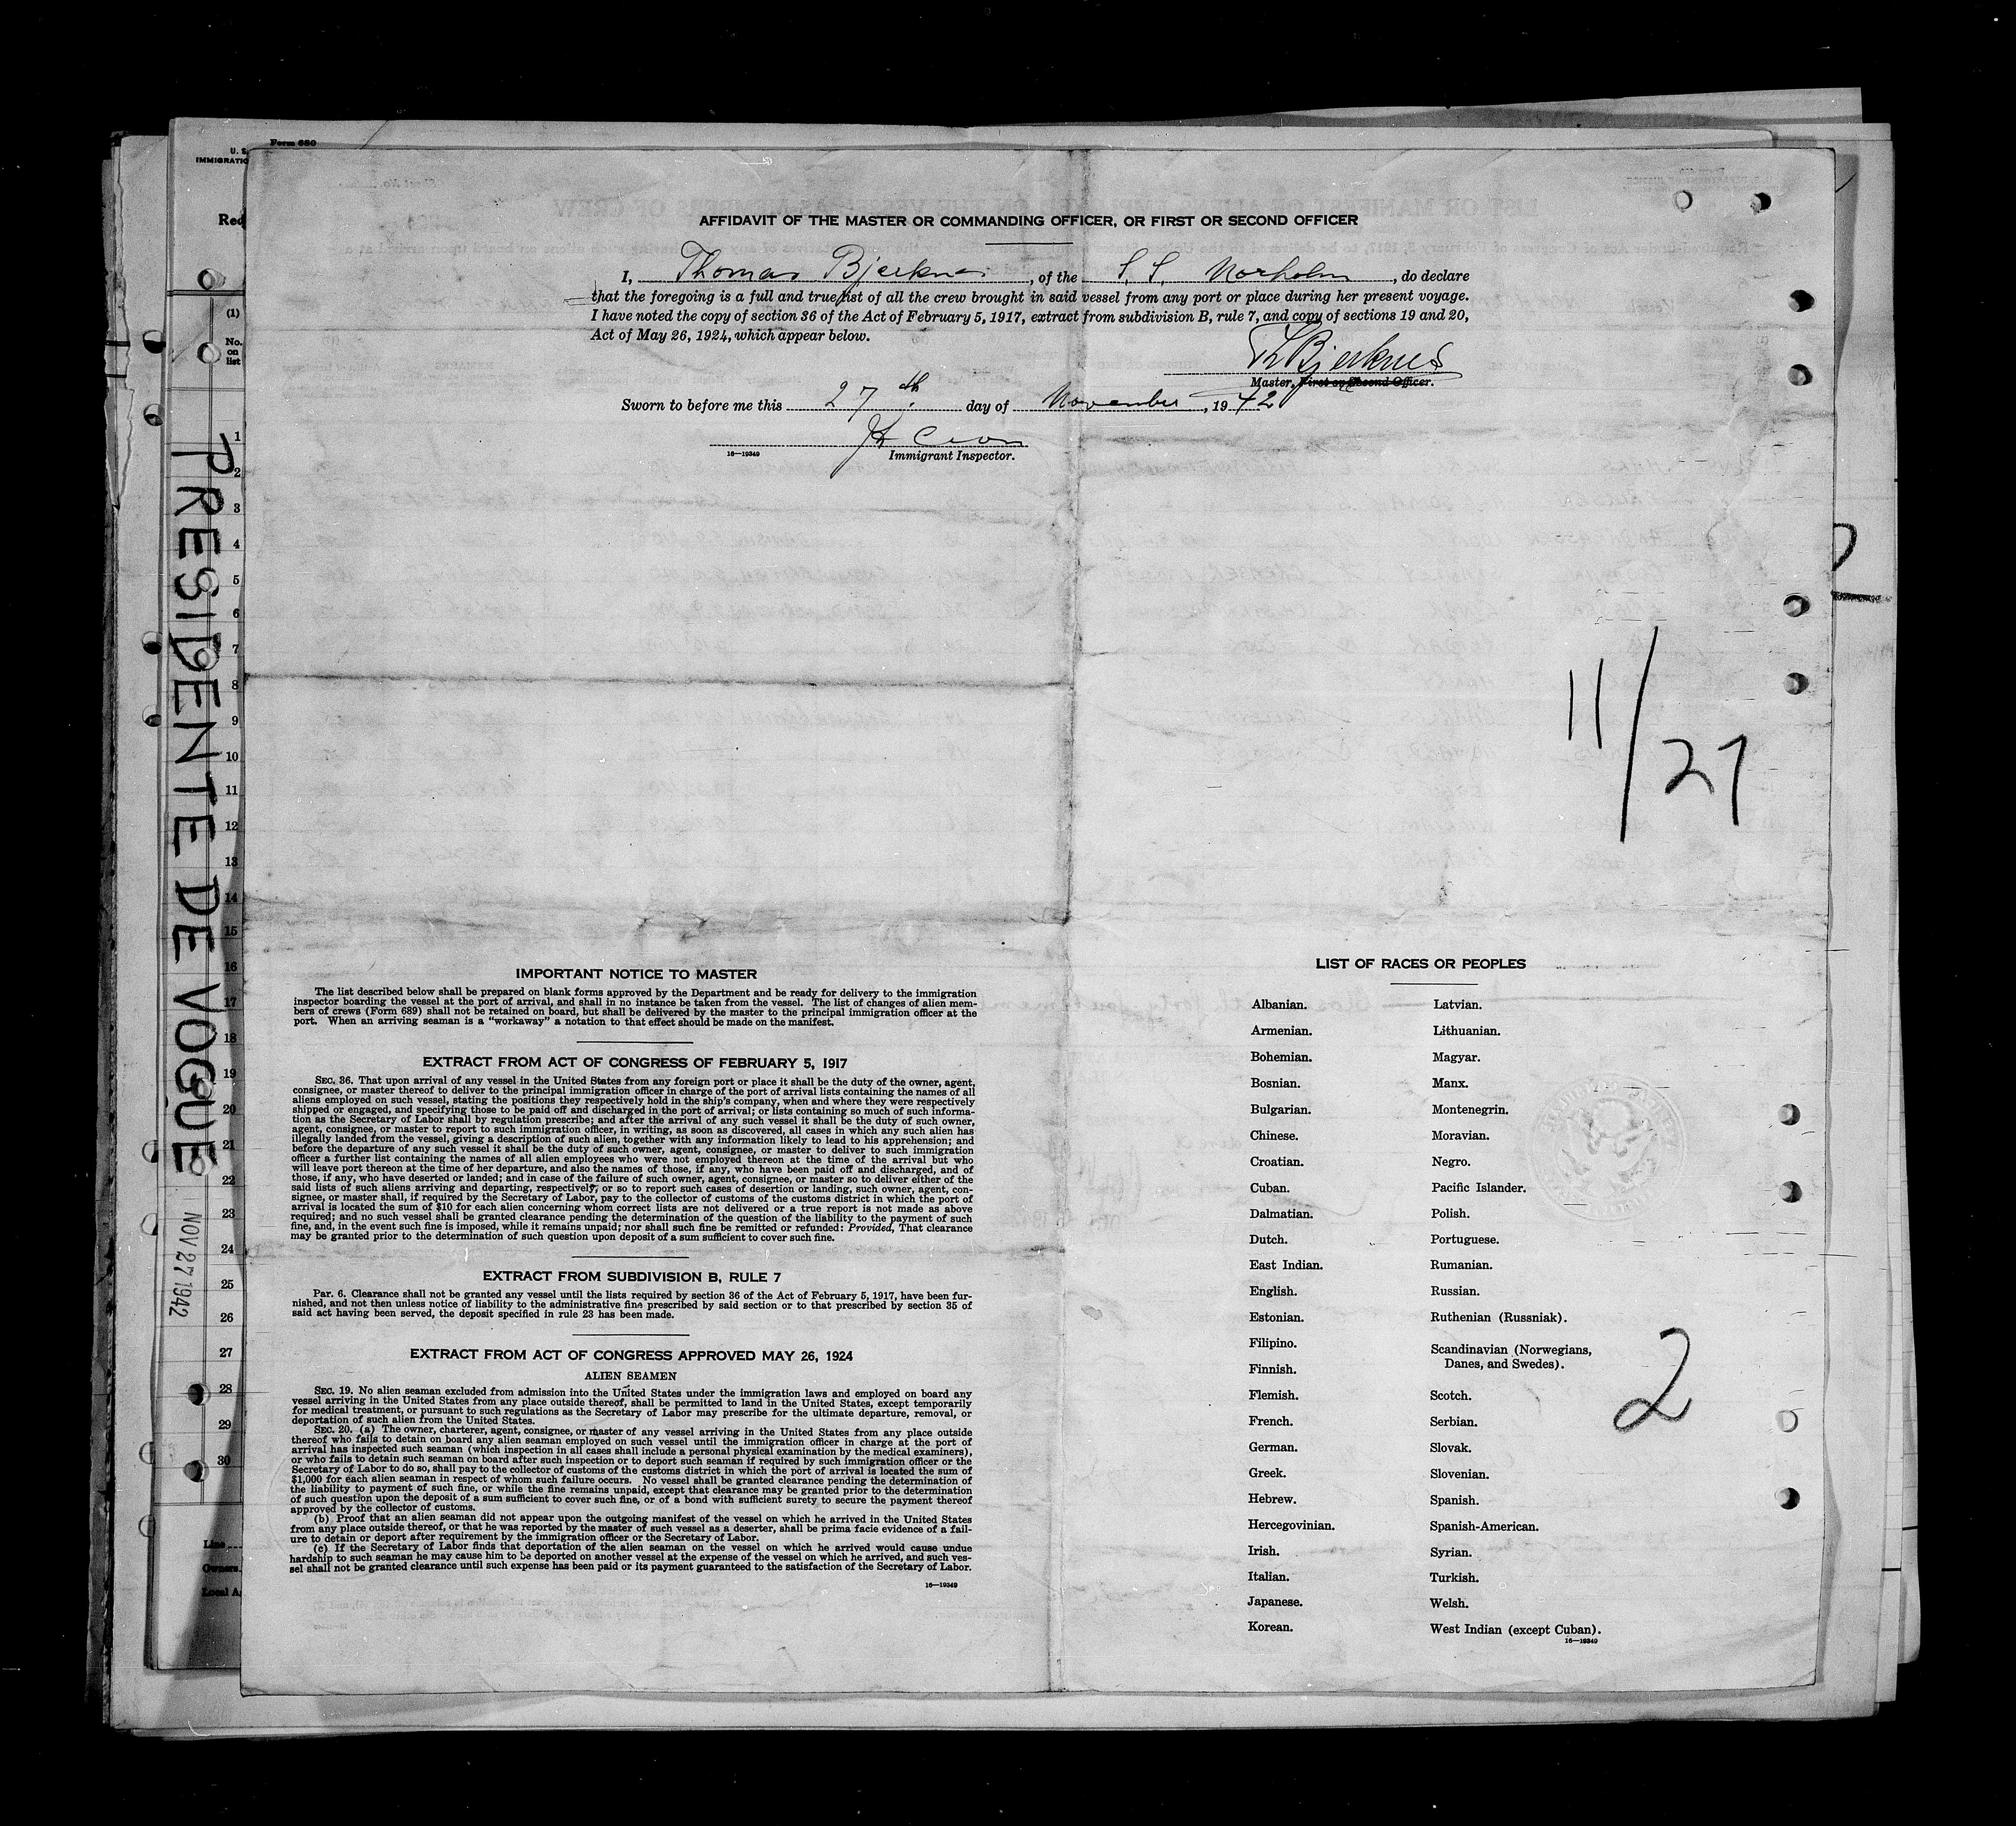 Form 680
U. S.
IMMIGRATIO
Req
(1)
No.
on
list
1
2
3
4
5
6
7
8
9
10
11
12
13
14
15
16
17
18
19
20
21
22
23
24
25
26
27
28
29
30
Line
Owners
Local A
PRESIDENTE DE VOGUE
NOV 27 1942
AFFIDAVIT OF THE MASTER OR COMMANDING OFFICER, OR FIRST OR SECOND OFFICER
I, Thomas Bjerknes, of the S.S. Norholm, do declare
that the foregoing is a full and true list of all the crew brought in said vessel from any port or place during her present voyage.
I have noted the copy of section 36 of the Act of February 5, 1917, extract from subdivision B, rule 7, and copy of sections 19 and 20,
Act of May 26, 1924, which appear below.
Th Bjerknes
Master, First or Second Officer.
Sworn to before me this 27th day of November, 1942
16—19349 Immigrant Inspector.
11/27
IMPORTANT NOTICE TO MASTER
The list described below shall be prepared on blank forms approved by the Department and be ready for delivery to the immigration
inspector boarding the vessel at the port of arrival, and shall in no instance be taken from the vessel. The list of changes of alien mem-
bers of crews (Form 689) shall not be retained on board, but shall be delivered by the master to the principal immigration officer at the
port. When an arriving seaman is a "workaway" a notation to that effect should be made on the manifest.
EXTRACT FROM ACT OF CONGRESS OF FEBRUARY 5, 1917
SEC. 36. That upon arrival of any vessel in the United States from any foreign port or place it shall be the duty of the owner, agent,
consignee, or master thereof to deliver to the principal immigration officer in charge of the port of arrival lists containing the names of all
aliens employed on such vessel, stating the positions they respectively hold in the ship's company, when and where they were respectively
shipped or engaged, and specifying those to be paid off and discharged in the port of arrival; or lists containing so much of such informa-
tion as the Secretary of Labor shall by regulation prescribe; and after the arrival of any such vessel it shall be the duty of such owner,
agent, consignee, or master to report to such immigration officer, in writing, as soon as discovered, all cases in which any such alien has
illegally landed from the vessel, giving a description of such alien, together with any information likely to lead to his apprehension; and
before the departure of any such vessel it shall be the duty of such owner, agent, consignee, or master to deliver to such immigration
officer a further list containing the names of all alien employees who were not employed thereon at the time of the arrival but who
will leave port thereon at the time of her departure, and also the names of those, if any, who have been paid off and discharged, and of
those, if any, who have deserted or landed; and in case of the failure of such owner, agent, consignee, or master so to deliver either of the
said lists of such aliens arriving and departing, respectively, or so to report such cases of desertion or landing, such owner, agent, con-
signee, or master shall, if required by the Secretary of Labor, pay to the collector of customs of the customs district in which the port of
arrival is located the sum of $10 for each alien concerning whom correct lists are not delivered or a true report is not made as above
required; and no such vessel shall be granted clearance pending the determination of the question of the liability to the payment of such
fine, and, in the event such fine is imposed, while it remains unpaid; nor shall such fine be remitted or refunded: Provided, That clearance
may be granted prior to the determination of such question upon deposit of a sum sufficient to cover such fine.
EXTRACT FROM SUBDIVISION B, RULE 7
Par. 6. Clearance shall not be granted any vessel until the lists required by section 36 of the Act of February 5, 1917, have been fur-
nished, and not then unless notice of liability to the administrative fine prescribed by said section or to that prescribed by section 35 of
said act having been served, the deposit specified in rule 23 has been made.
EXTRACT FROM ACT OF CONGRESS APPROVED MAY 26, 1924
ALIEN SEAMEN
SEC. 19. No alien seaman excluded from admission into the United States under the immigration laws and employed on board any
vessel arriving in the United States from any place outside thereof, shall be permitted to land in the United States, except temporarily
for medical treatment, or pursuant to such regulations as the Secretary of Labor may prescribe for the ultimate departure, removal, or
deportation of such alien from the United States.
SEC. 20. (a) The owner, charterer, agent, consignee, or master of any vessel arriving in the United States from any place outside
thereof who fails to detain on board any alien seaman employed on such vessel until the immigration officer in charge at the port of
arrival has inspected such seaman (which inspection in all cases shall include a personal physical examination by the medical examiners),
or who fails to detain such seaman on board after such inspection or to deport such seaman if required by such immigration officer or the
Secretary of Labor to do so, shall pay to the collector of customs of the customs district in which the port of arrival is located the sum of
$1,000 for each alien seaman in respect of whom such failure occurs. No vessel shall be granted clearance pending the determination of
the liability to payment of such fine, or while the fine remains unpaid, except that clearance may be granted prior to the determination
of such question upon the deposit of a sum sufficient to cover such fine, or of a bond with sufficient surety to secure the payment thereof
approved by the collector of customs.
(b) Proof that an alien seaman did not appear upon the outgoing manifest of the vessel on which he arrived in the United States
from any place outside thereof, or that he was reported by the master of such vessel as a deserter, shall be prima facie evidence of a fail-
ure to detain or deport after requirement by the immigration officer or the Secretary of Labor.
(c) If the Secretary of Labor finds that deportation of the alien seaman on the vessel on which he arrived would cause undue
hardship to such seaman he may cause him to be deported on another vessel at the expense of the vessel on which he arrived, and such ves-
sel shall not be granted clearance until such expense has been paid or its payment guaranteed to the satisfaction of the Secretary of Labor.
16—19349
LIST OF RACES OR PEOPLES
Albanian. Latvian.
Armenian. Lithuanian.
Bohemian. Magyar.
Bosnian. Manx.
Bulgarian. Montenegrin.
Chinese. Moravian.
Croatian. Negro.
Cuban. Pacific Islander.
Dalmatian. Polish.
Dutch. Portuguese.
East Indian. Rumanian.
English. Russian.
Estonian. Ruthenian (Russniak).
Filipino. Scandinavian (Norwegians,
Danes, and Swedes).
Finnish.
Flemish. Scotch.
French. Serbian.
German. Slovak.
Greek. Slovenian.
Hebrew. Spanish.
Hercegovinian. Spanish-American.
Irish. Syrian.
Italian. Turkish.
Japanese. Welsh.
Korean. West Indian (except Cuban).
16—19349
2